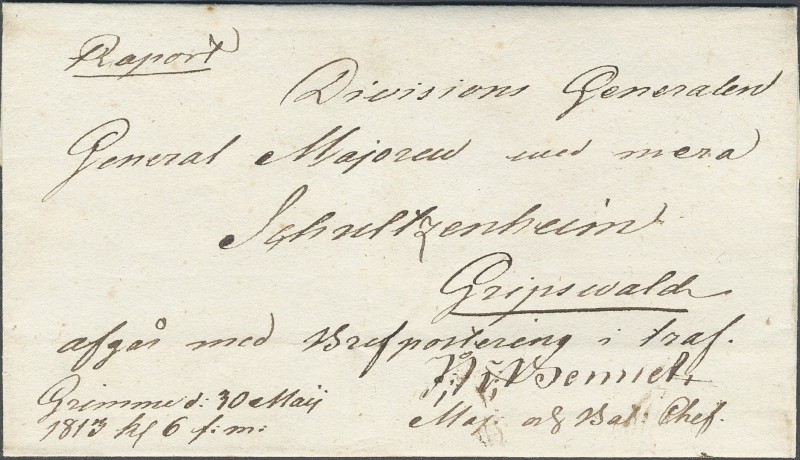 Raport
Divisions Generalen
General Majoren med mera
Schultzenheim
Gripswalde
afgår med Brefpostering i traf.
Bennet
Grimme d: 30 Maij
1813 kl 6 f: m:
Maj: och Bat: Chef.